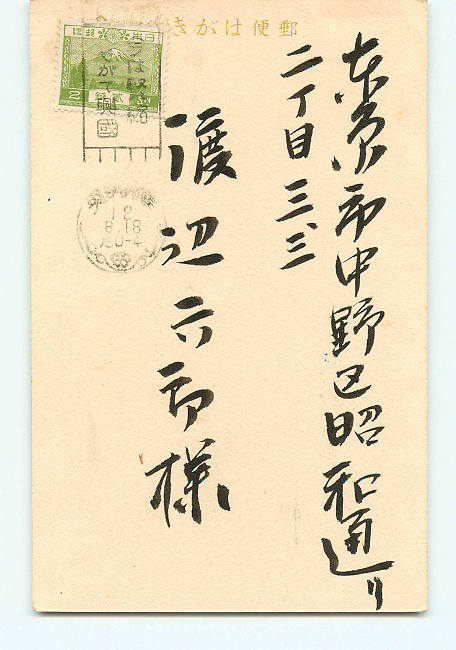 郵便はがき
東京市中野区昭和通り
二丁目三、三
渡辺六郎様
12
8.18